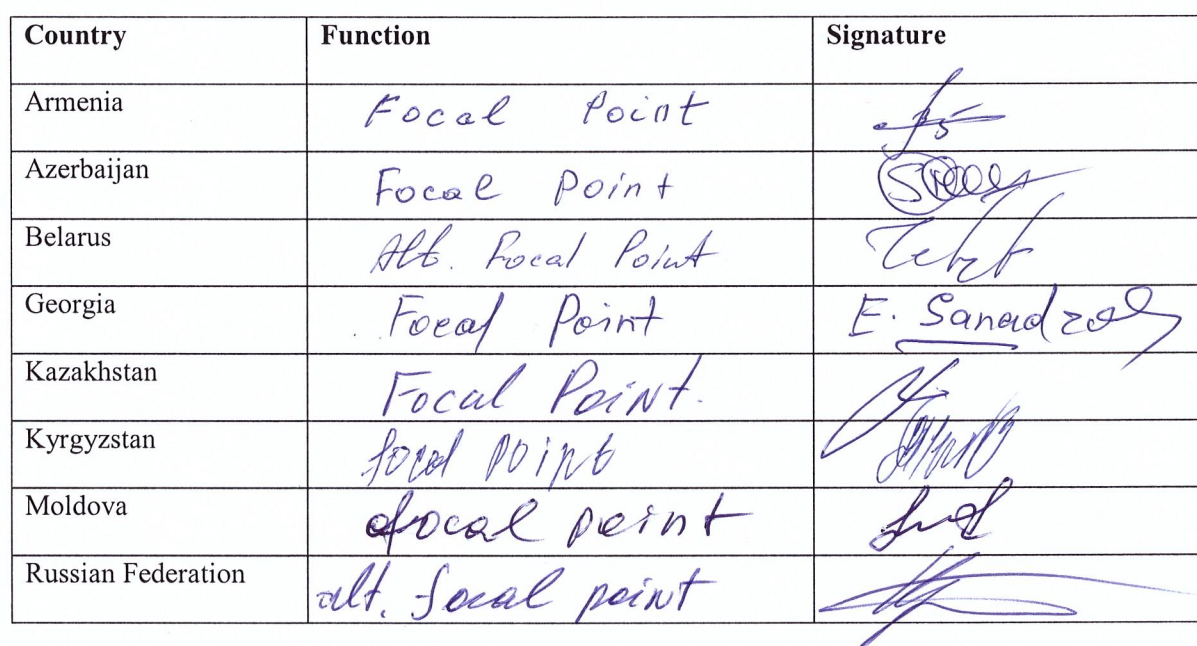 Country Function Signature
Armenia Focal Point
Azerbaijan Focal Point
Belarus Alt. Focal Point
Georgia Focal Point E.
Kazakhstan Focal Point.
Kyrgyzstan focal point
Moldova focal point
Russian Federation alt. focal point